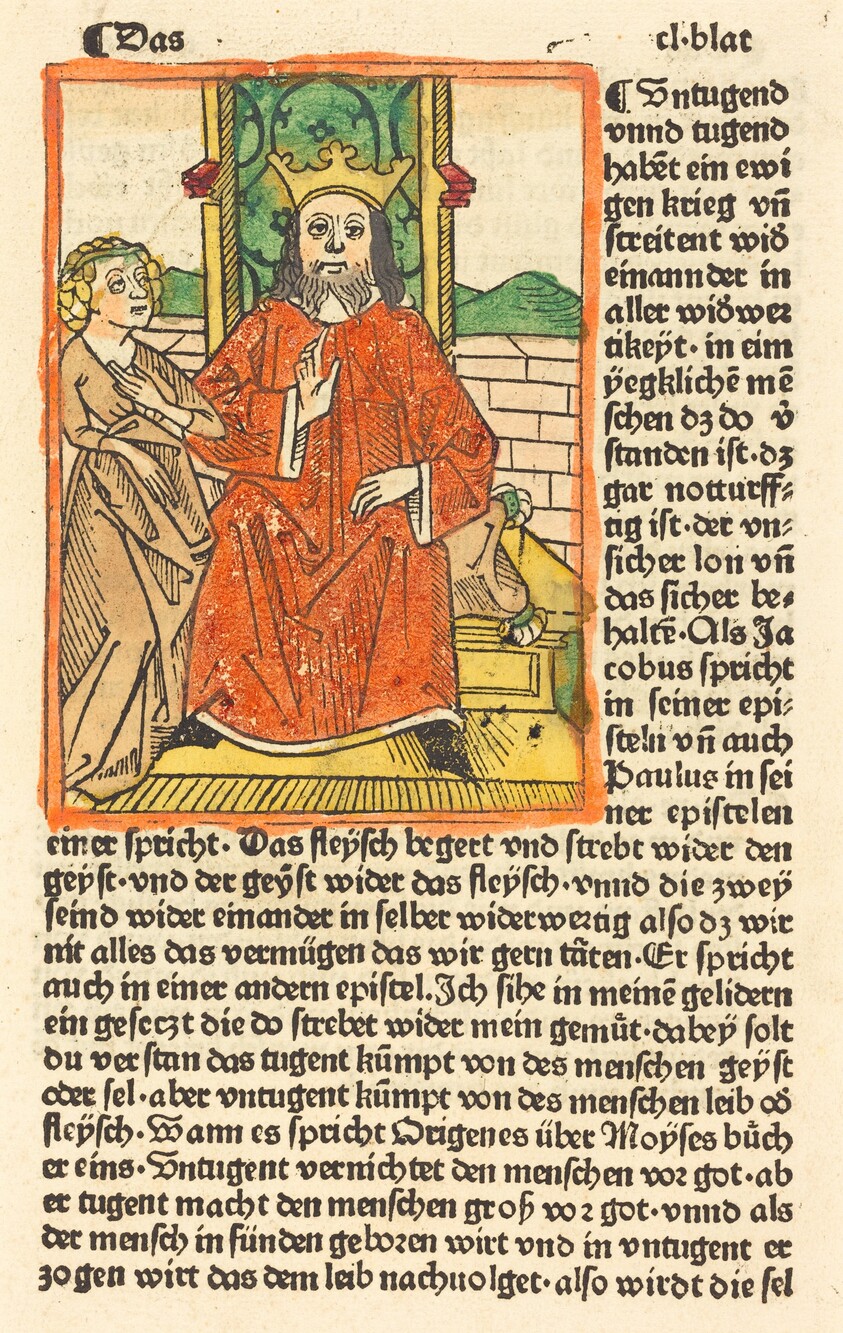 ¶ Das cl·blat
¶ Untugend
vnnd tugend
habēt ein ewi
gen krieg vn̄
ſtreitent wid̕
einannder in
aller wid̕weꝛ
tikeÿt· in eim
ÿegklichē mē
ſchen dꝫ do v̕
ſtanden iſt·dꝫ
gar notturff⸗
tig iſt·der vn⸗
ſicher lon vn̄
das ſicher be⸗
haltē·Als Ja
cobus ſpricht
in ſeiner epi⸗
ſteln vn̄ auch
Paulus in ſei
ner epiſtelen
einer ſpricht· Das fleÿſch begert vnd ſtrebt wider den
geÿſt·vnd der geÿſt wider das fleÿſch·vnnd die zweÿ
ſeind wider einander in ſelber widerweꝛtig alſo dꝫ wir
nit alles das vermügen das wir gern tāten·Er ſpricht
auch in einer andern epiſtel.Jch ſihe in meinē gelidern
ein geſeczt die do ſtrebet wider mein gemuͤt·dabeÿ ſolt
du verſtan das tugent kūmpt von des menſchen geÿſt
oder ſel·aber vntugent kūmpt von des menſchen leib od̕
fleÿſch·Wann es ſpricht Origenes über Moÿſes buͤch
er eins·Untugent vernichtet den menſchen voꝛ got·ab
er tugent macht den menſchen groß voꝛ got·vnnd als
der menſch in ſünden geboꝛen wirt vnd in vntugent er
zogen wirt das dem leib nachuolget·alſo wirdt die ſel